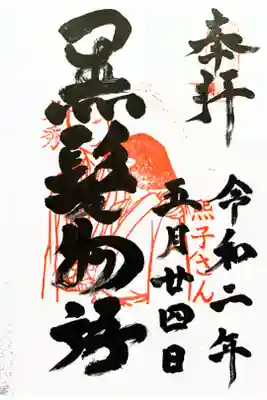 奉拝
令和二年
五月廿四日
黒髪物語
黒子さん